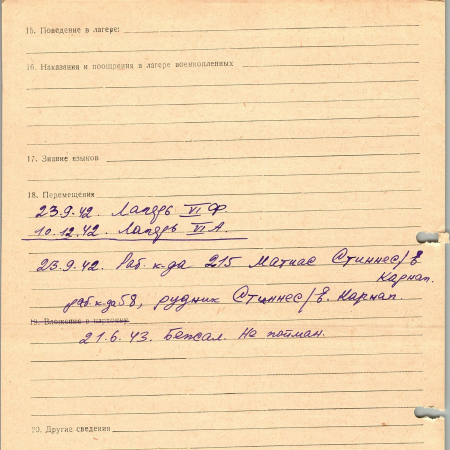 15. Поведение в лагере:
16. Наказания и поощрения в лагере военнопленных
17. Знание языков
18. Перемещения
23.9.42. Лагерь VI Ф.
10.12.42. Лагерь VI А.
23.9.42. Раб. к-да 215 Матиас Стиннес/в
Карнап.
раб.к-да 58, рудник Стиннес/в. Карнап.
19. Вложения в карточку
21.6.43. Бежал. Не пойман.
20. Другие сведения